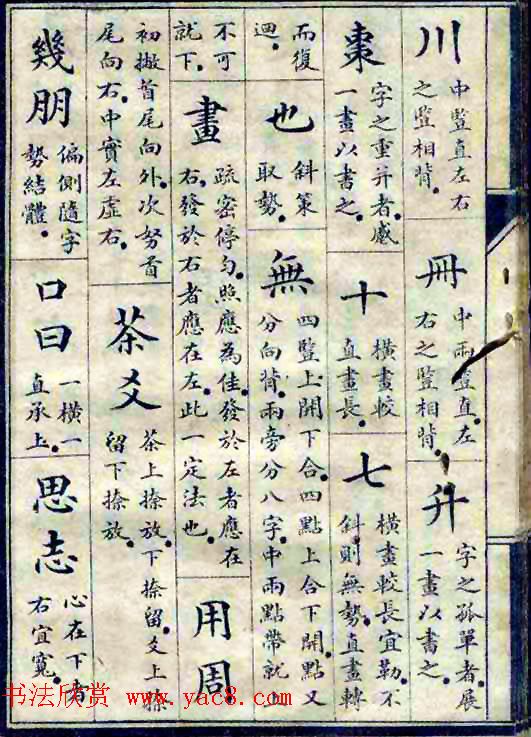 川
中豎直左右
之豎相背
冊
中兩豎直左
右之豎相背
升
字之孤單者展
一畫以書之
棗
字之重并者感
一畫以書之
十
橫畫較
直畫長
七
橫畫較長宜勒不
斜則無勢直畫轉
而復
迴
也
斜策
取勢
無
四豎上開下合四點上合下開點又
分向背兩旁分八字中兩點帶就上
不可
就下
畫
疏密停勻照應為佳發於左者應在
右發於右者應在左此一定法也
用周
初撇首尾向外次努首
尾向右中實左虛右
茶爻
茶上捺放下捺留爻上捺
留下捺放
幾朋
偏側隨字
勢結體
口曰
一橫一
直承上
思志
心在下者
右宜寬
书法欣赏 www.yac8.com